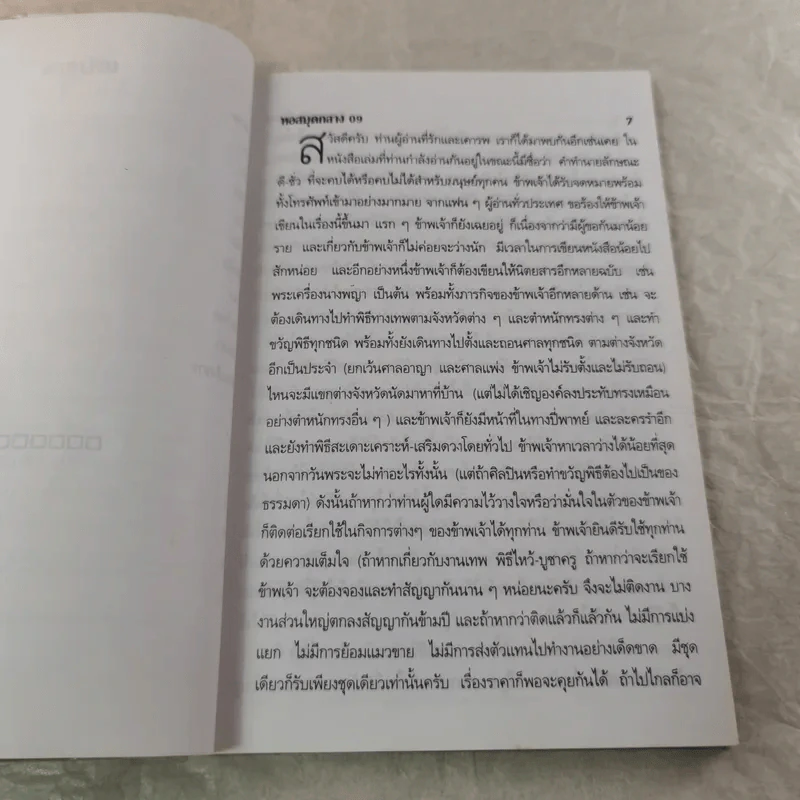 หอสมุดกลาง 09 7
สวัสดีครับ ท่านผู้อ่านที่รักและเคารพ เราก็ได้มาพบกันอีกเช่นเคย ใน
หนังสือเล่มที่ท่านกำลังอ่านกันอยู่ในขณะนี้มีชื่อว่า คำทำนายลักษณะ
ดี-ชั่ว ที่จะคบได้หรือคบไม่ได้สำหรับมนุษย์ทุกคน ข้าพเจ้าได้รับจดหมายพร้อม
ทั้งโทรศัพท์เข้ามาอย่างมากมาย จากแฟน ๆ ผู้อ่านทั่วประเทศ ขอร้องให้ข้าพเจ้า
เขียนในเรื่องนี้ขึ้นมา แรก ๆ ข้าพเจ้าก็ยังเฉยอยู่ ก็เนื่องจากว่ามีผู้ขอกันมาน้อย
ราย และเกี่ยวกับข้าพเจ้าก็ไม่ค่อยจะว่างนัก มีเวลาในการเขียนหนังสือน้อยไป
สักหน่อย และอีกอย่างหนึ่งข้าพเจ้าก็ต้องเขียนให้นิตยสารอีกหลายฉบับ เช่น
พระเครื่องนางพญา เป็นต้น พร้อมทั้งภารกิจของข้าพเจ้าอีกหลายด้าน เช่น จะ
ต้องเดินทางไปทำพิธีทางเทพตามจังหวัดต่าง ๆ และตำหนักทรงต่าง ๆ และทำ
ขวัญพิธีทุกชนิด พร้อมทั้งยังเดินทางไปตั้งและถอนศาลทุกชนิด ตามต่างจังหวัด
อีกเป็นประจำ (ยกเว้นศาลอาญา และศาลแพ่ง ข้าพเจ้าไม่รับตั้งและไม่รับถอน)
ไหนจะมีแขกต่างจังหวัดนัดมาหาที่บ้าน (แต่ไม่ได้เชิญองค์ลงประทับทรงเหมือน
อย่างตำหนักทรงอื่น ๆ ) และข้าพเจ้าก็ยังมีหน้าที่ในทางปี่พาทย์ และละครรำอีก
และยังทำพิธีสะเดาะเคราะห์-เสริมดวงโดยทั่วไป ข้าพเจ้าหาเวลาว่างได้น้อยที่สุด
นอกจากวันพระจะไม่ทำอะไรทั้งนั้น (แต่ถ้าศิลปินหรือทำขวัญพิธีต้องไปเป็นของ
ธรรมดา) ดังนั้นถ้าหากว่าท่านผู้ใดมีความไว้วางใจหรือว่ามั่นใจในตัวของข้าพเจ้า
ก็ติดต่อเรียกใช้ในกิจการต่างๆ ของข้าพเจ้าได้ทุกท่าน ข้าพเจ้ายินดีรับใช้ทุกท่าน
ด้วยความเต็มใจ (ถ้าหากเกี่ยวกับงานเทพ พิธีไหว้-บูชาครู ถ้าหากว่าจะเรียกใช้
ข้าพเจ้า จะต้องจองและทำสัญญากันนาน ๆ หน่อยนะครับ จึงจะไม่ติดงาน บาง
งานส่วนใหญ่ตกลงสัญญากันข้ามปี และถ้าหากว่าติดแล้วก็แล้วกัน ไม่มีการแบ่ง
แยก ไม่มีการย้อมแมวขาย ไม่มีการส่งตัวแทนไปทำงานอย่างเด็ดขาด มีชุด
เดียวก็รับเพียงชุดเดียวเท่านั้นครับ เรื่องราคาก็พอจะคุยกันได้ ถ้าไปไกลก็อาจ